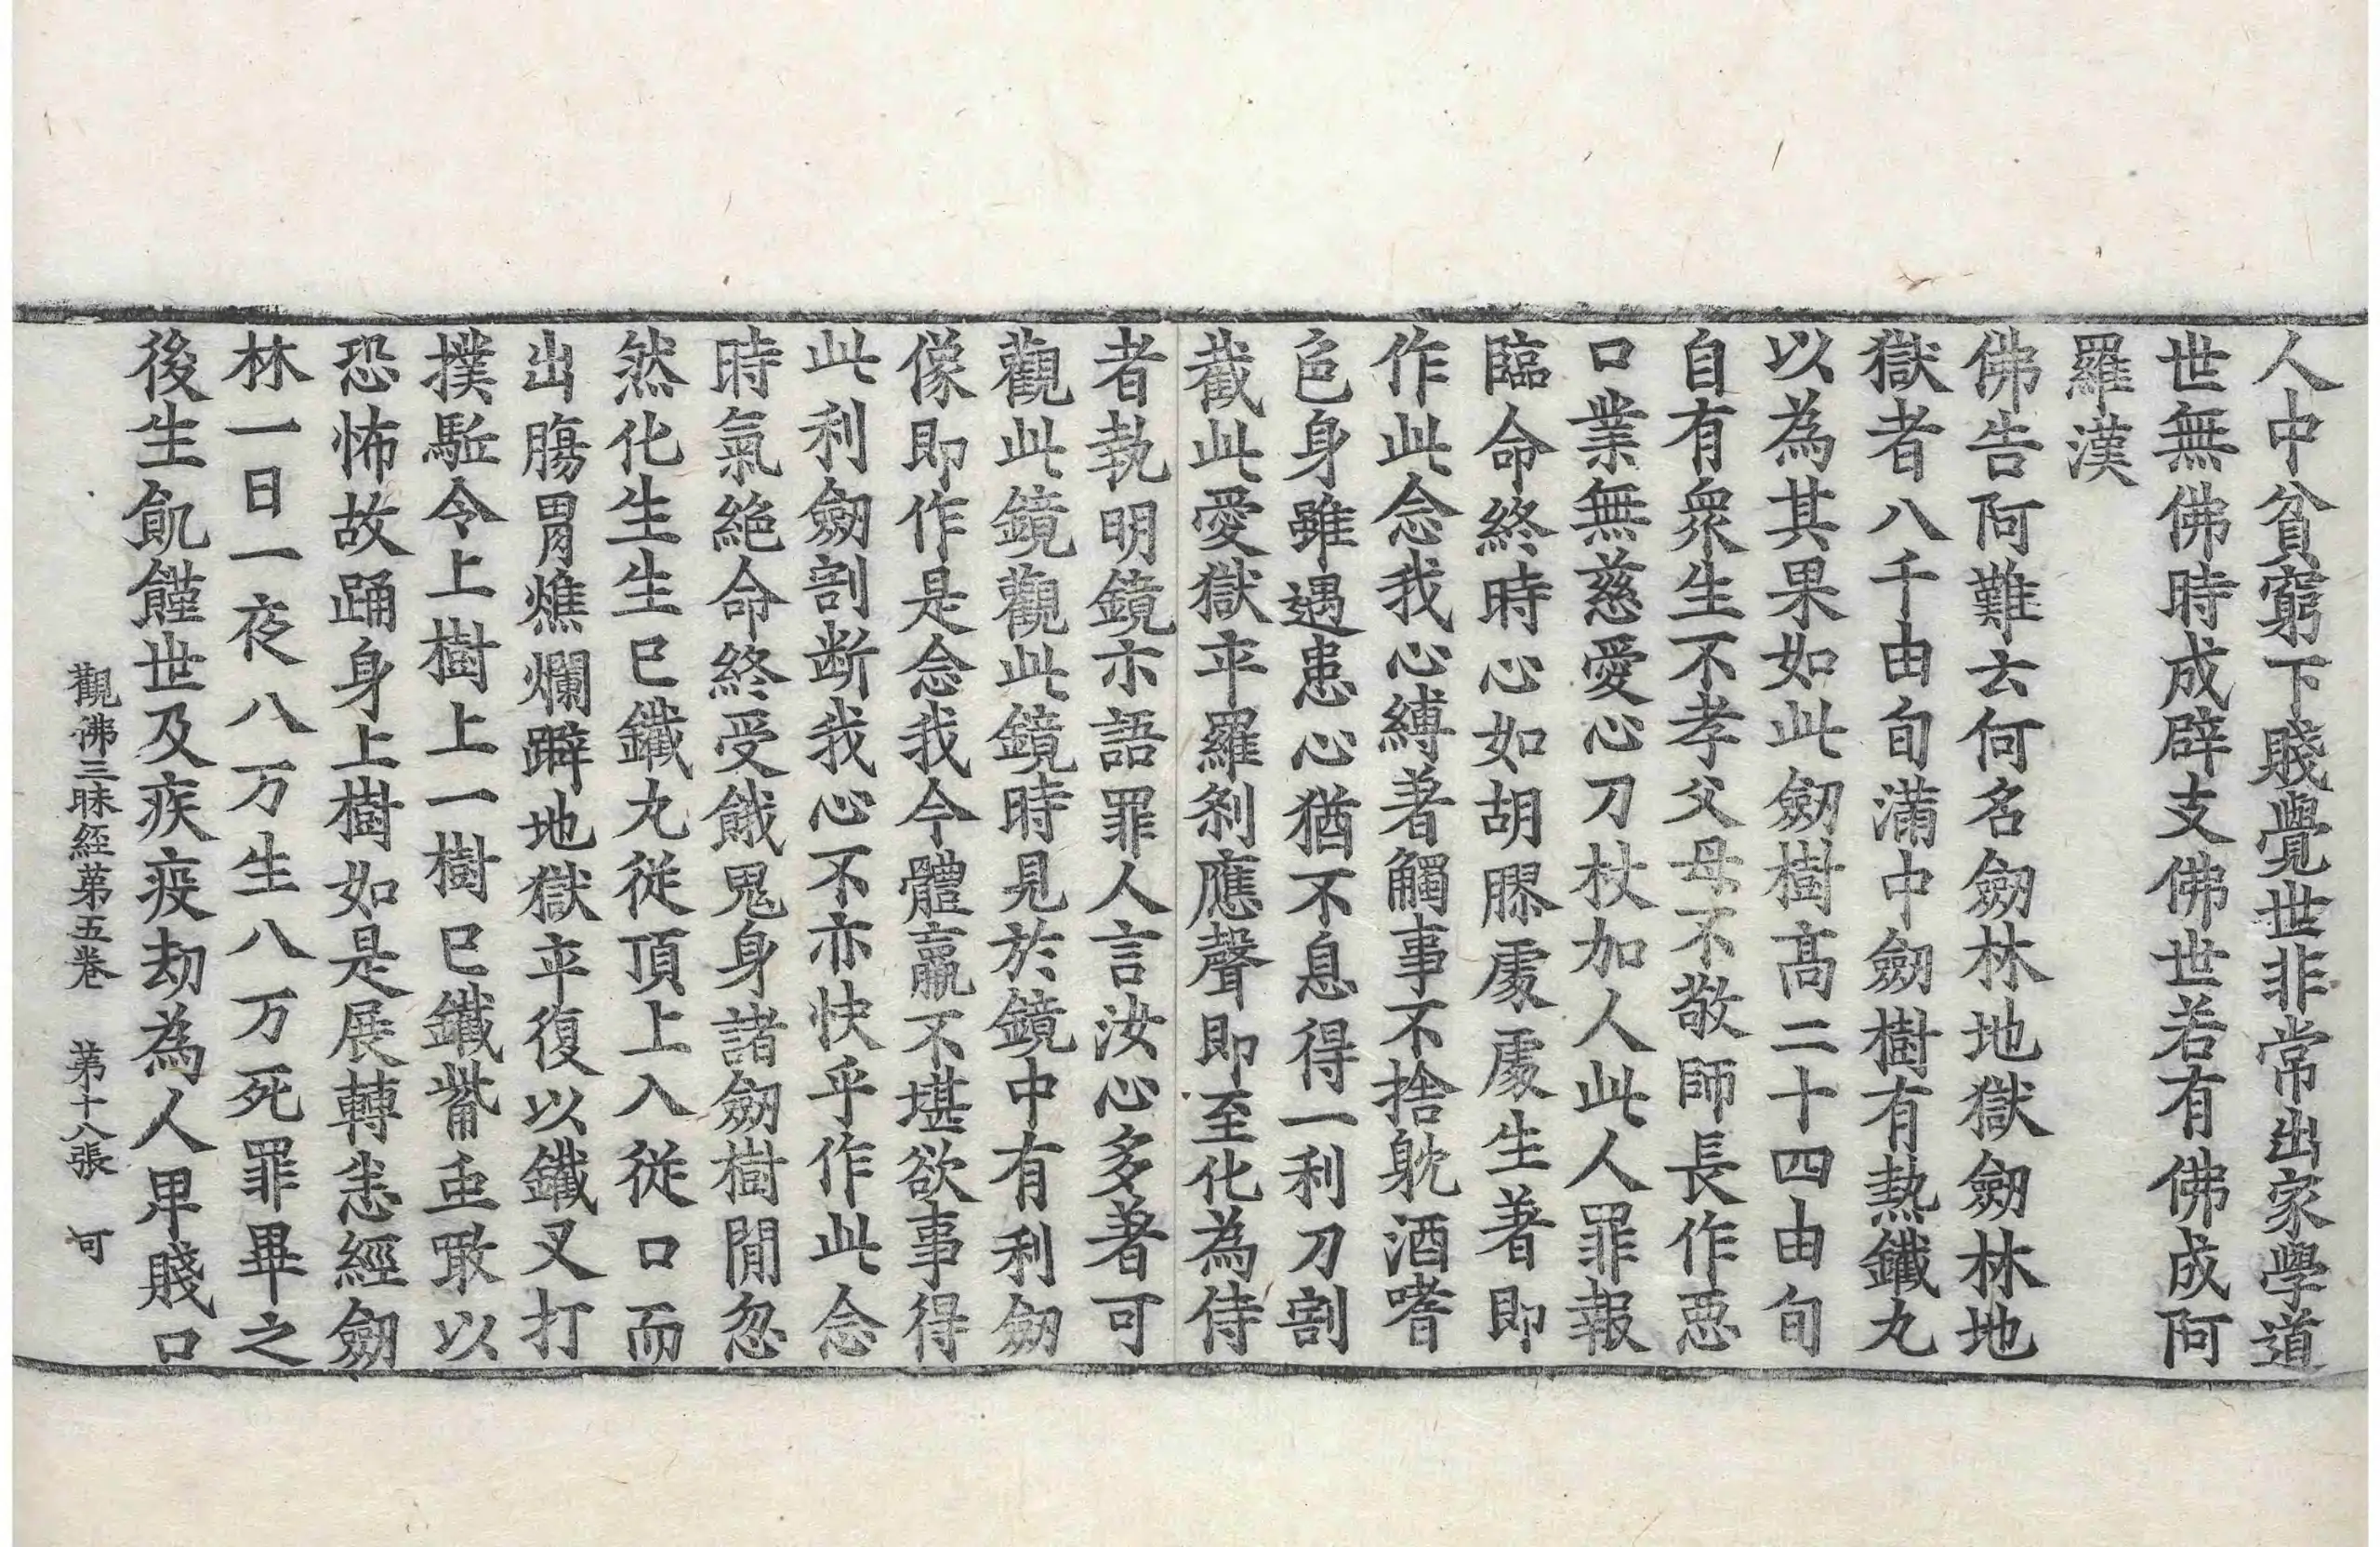 人中貧窮下賤覺世非常出家學道
世無佛時成辟支佛世若有佛成阿
羅漢
佛告阿難云何名劒林地獄劒林地
獄者八千由旬滿中劒樹有熱鐵丸
以為其果如此劒樹髙二十四由旬
自有衆生不孝父母不敬師長作惡
口業無慈愛心刀杖加人此人罪報
臨命終時心如胡膠處處生著即
作此念我心縛著觸事不捨躭酒嗜
色身雖遇患心猶不息得一利刀割
截此愛獄卒羅刹應聲即至化為侍
者執明鏡示語罪人言汝心多著可
觀此鏡觀此鏡時見於鏡中有利劒
像即作是念我今體羸不堪欲事得
此利劒剖断我心不亦快乎作此念
時氣絶命終受餓鬼身諸劒樹間忽
然化生生已鐵丸從頂上入從口而
出腸胃燋爛躃地獄卒復以鐵叉打
撲駈令上樹上一樹已鐵觜虫噉以
恐怖故踊身上樹如是展轉恙經劒
林一日一夜八万生八万死罪畢之
後生飢饉世及疾疫劫為人卑賤口
觀佛三昧經苐五卷 苐十八張 可